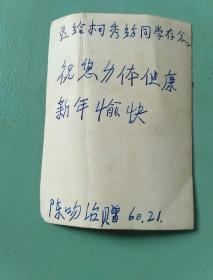 送给柯秀纺同学存念
祝您身体健康
新年愉快
陈吻治赠 60.2.1.